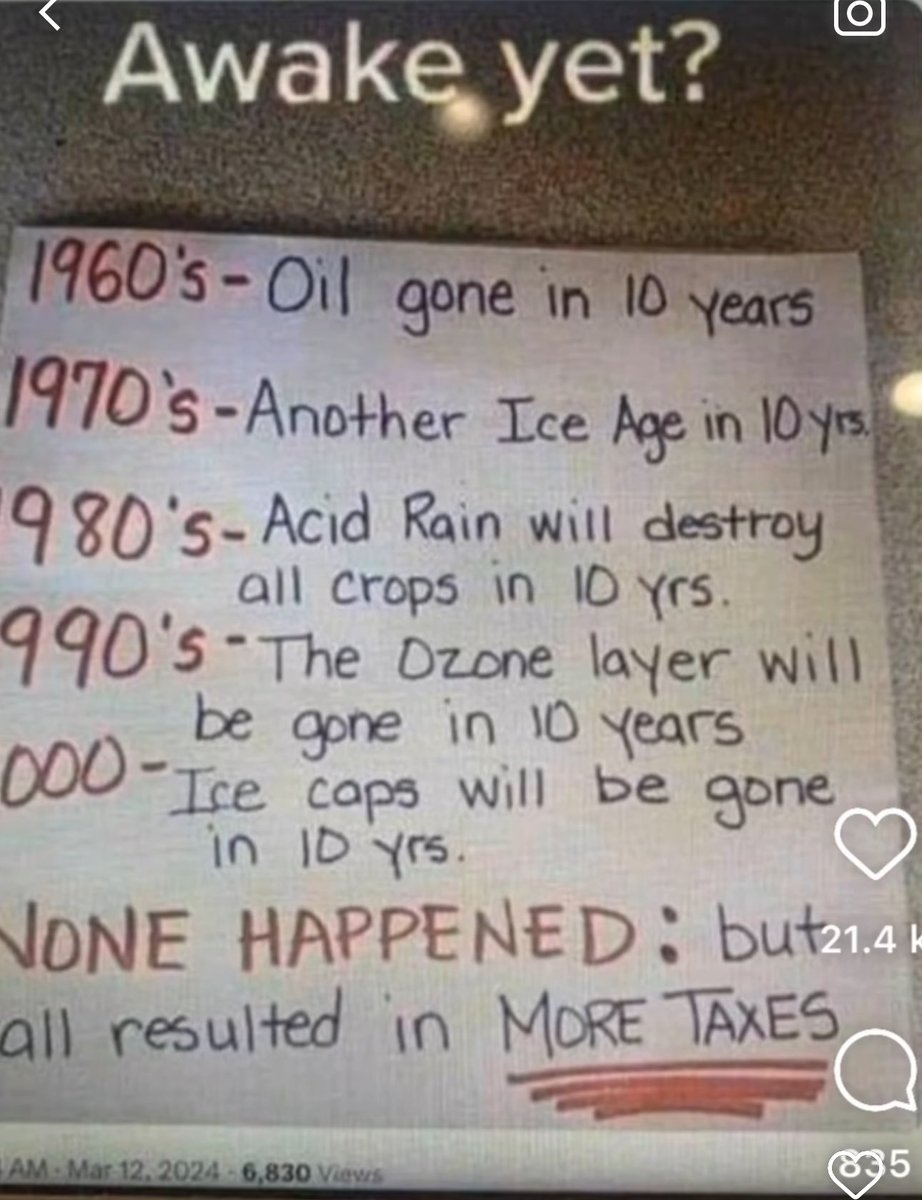 Awake yet?
1960's - Oil gone in 10 years
1970's - Another Ice Age in 10 yrs.
980's - Acid Rain will destroy
all crops in 10 yrs.
990's - The Ozone layer will
be gone in 10 years
000 - Ice caps will be gone
in 10 yrs.
NONE HAPPENED: but
21.4 k
all resulted in MORE TAXES
AM · Mar 12, 2024 · 6,830 Views
835